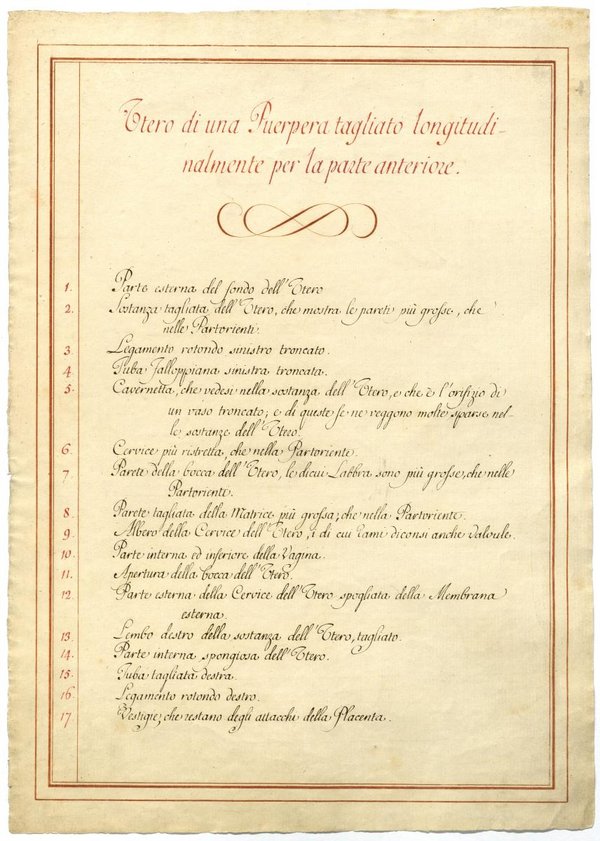 Utero di una Puerpera tagliato longitudi-
nalmente per la parte anteriore.
1. Parte esterna del fondo dell'Utero
2. Sostanza tagliata dell'Utero, che mostra le pareti più grosse, che
nelle Partorienti.
3. Legamento rotondo sinistro troncato.
4. Tuba Falloppiana sinistra troncata.
5. Cavernetta, che vedesi nella sostanza dell'Utero, e che è l'orifizio di
un vaso troncato; e di queste se ne veggono molte sparse nel-
le sostanze dell'Utero.
6. Cervice più ristretta, che nella Partoriente.
7. Parete della bocca dell'Utero, le di cui Labbra sono più grosse, che nelle
Partorienti.
8. Parete tagliata della Matrice più grossa, che nella Partoriente.
9. Albero della Cervice dell'Utero, i di cui rami diconsi anche Valvule.
10. Parte interna ed inferiore della Vagina.
11. Apertura della bocca dell'Utero.
12. Parte esterna della Cervice dell'Utero spogliata della Membrana
esterna.
13. Lembo destro della sostanza dell'Utero, tagliato.
14. Parte interna spongiosa dell'Utero.
15. Tuba tagliata destra.
16. Legamento rotondo destro.
17. Vestigie, che restano degli attacchi della Placenta.